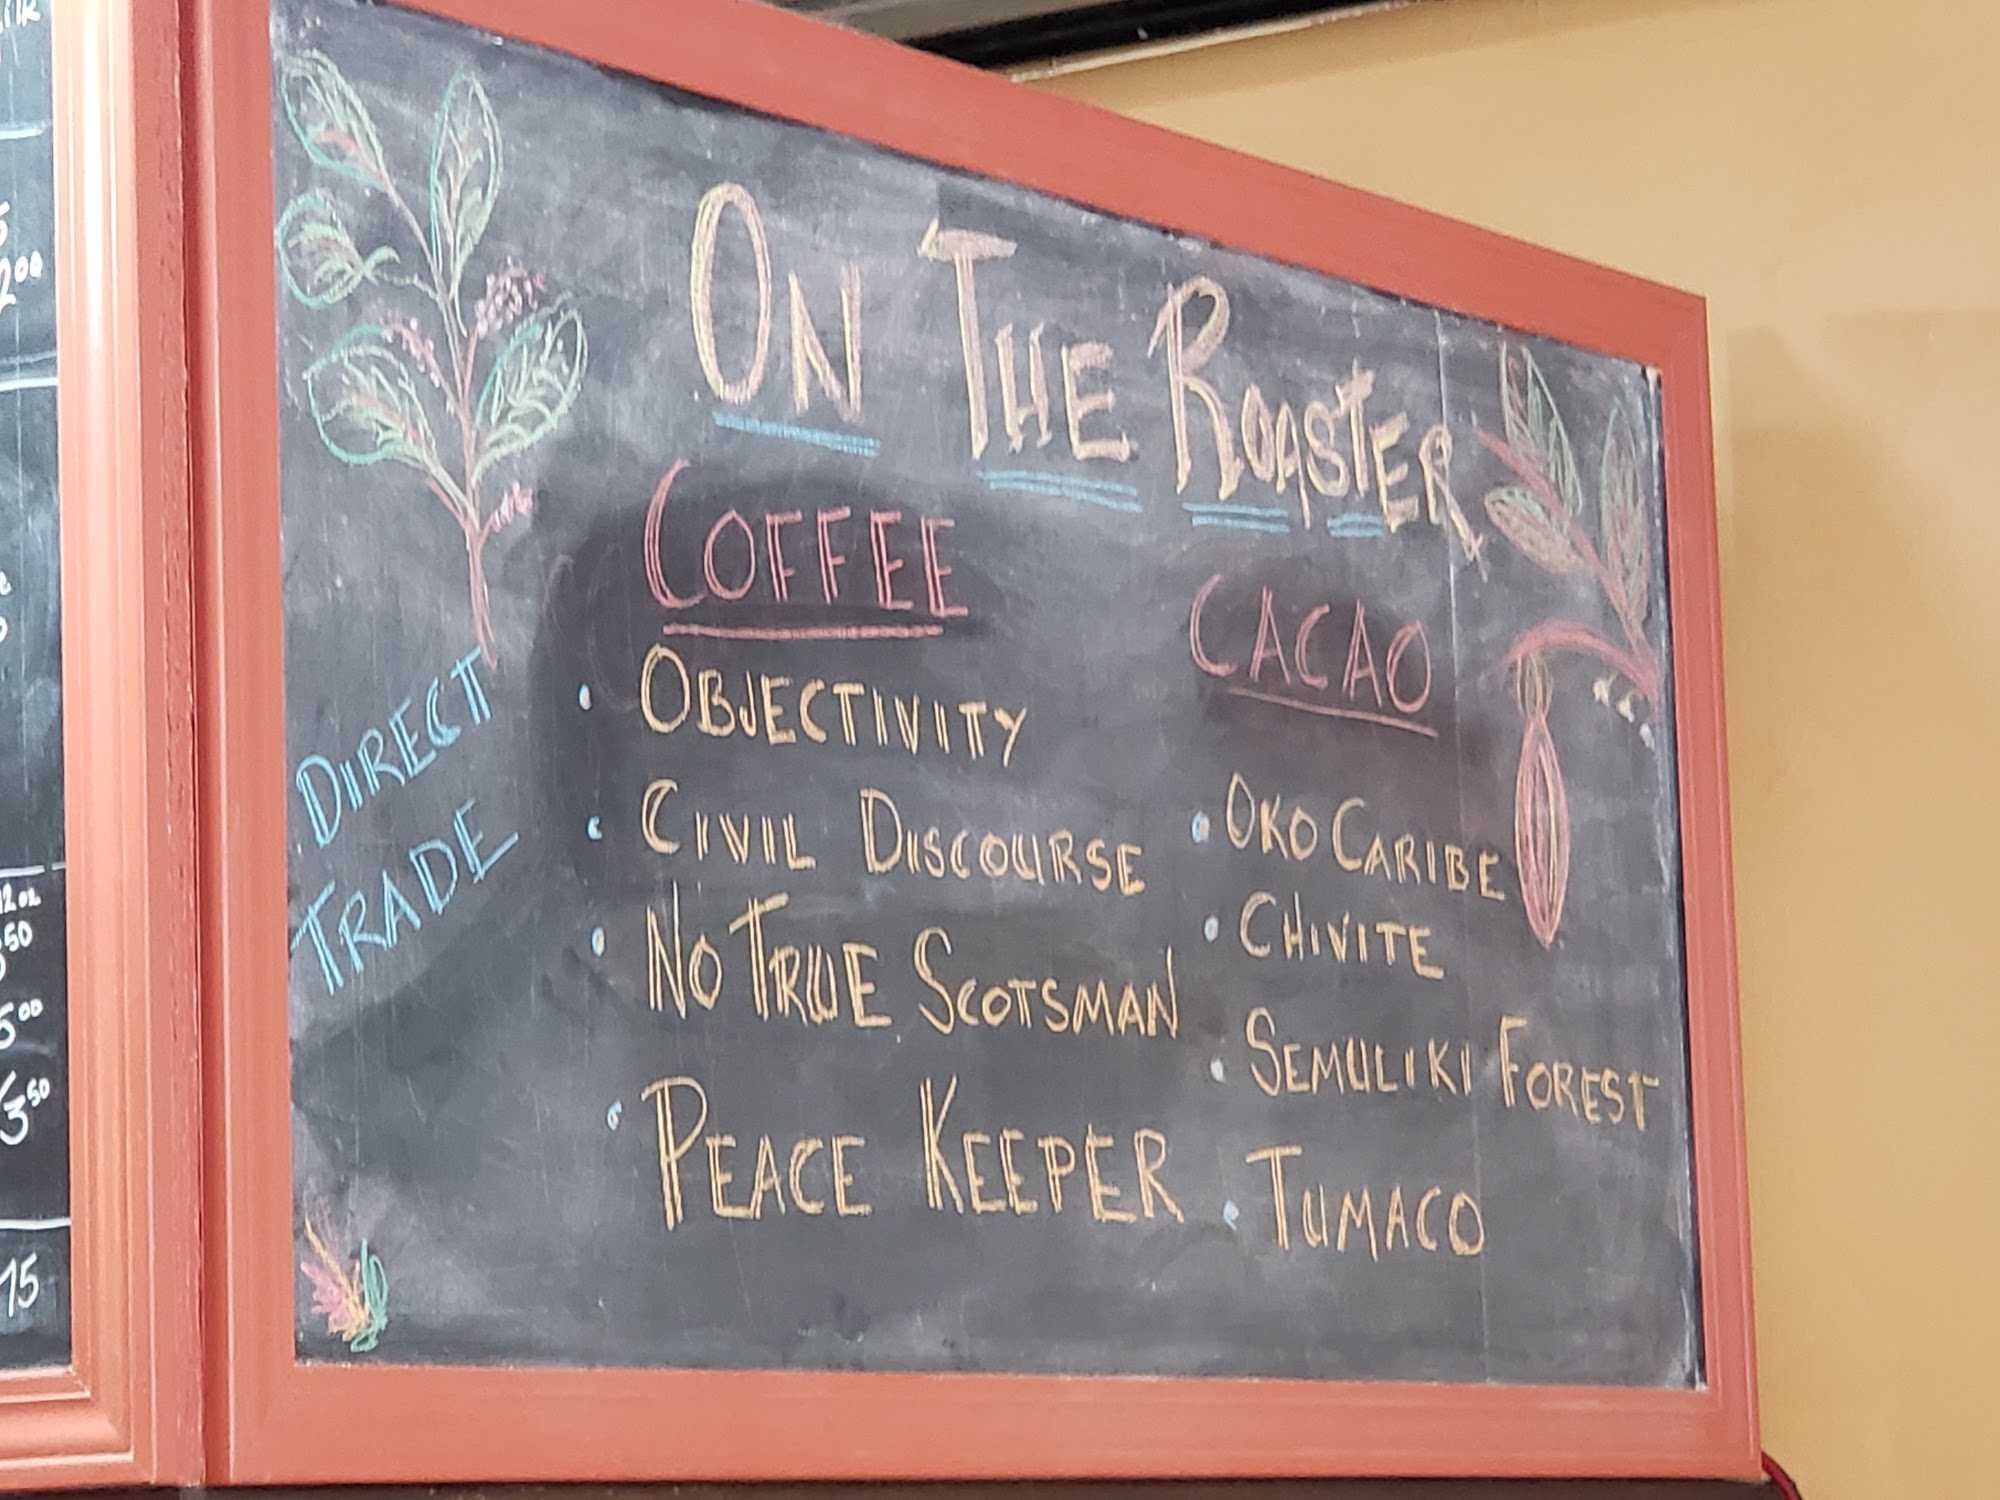 On The Roaster
Coffee
Cacao
Direct
Trade
Objectivity
Civil Discourse
No True Scotsman
Peace Keeper
Oko Caribe
Chivite
Semuliki Forest
Tumaco
200
12 oz
50
500
350
75